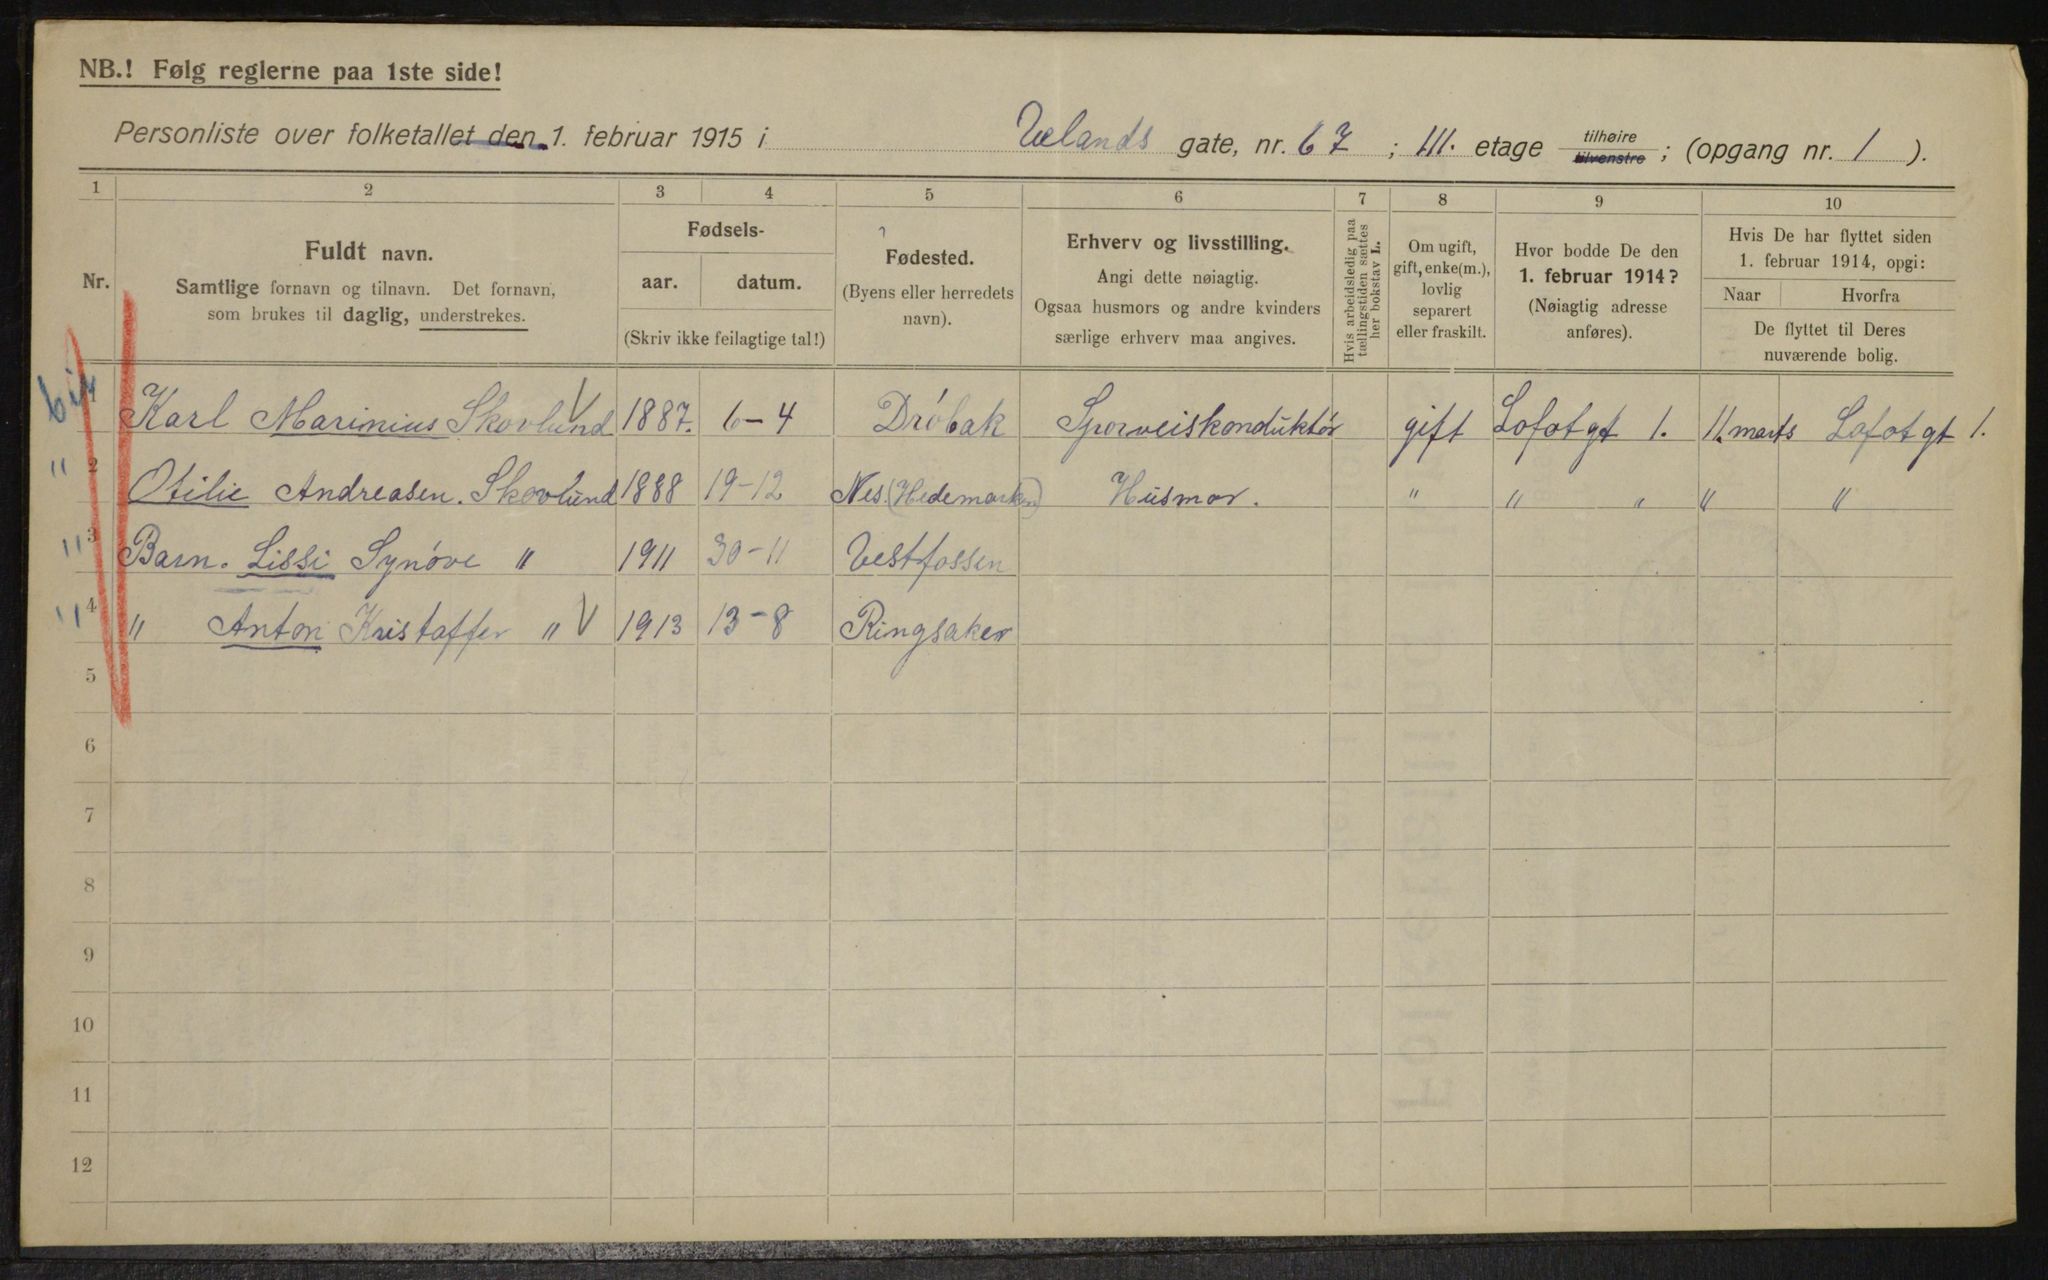 NB.! Følg reglerne paa 1ste side!
Personliste over folketallet den 1. februar 1915 i Uelands gate, nr. 67 ; III. etage tilhøire tilvenstre ; (opgang nr. 1 ).
1 2 3 4 5 6 7 8 9 10
Nr.
Fuldt navn.
Samtlige fornavn og tilnavn. Det fornavn,
som brukes til daglig, understrekes.
Fødsels-
aar. datum.
(Skriv ikke feilagtige tal!)
Fødested.
(Byens eller herredets
navn).
Erhverv og livsstilling.
Angi dette nøiagtig.
Ogsaa husmors og andre kvinders
særlige erhverv maa angives.
Hvis arbeidsledig paa
tællingstiden sættes
her bokstav L.
Om ugift,
gift, enke(m.),
lovlig
separert
eller fraskilt.
Hvor bodde De den
1. februar 1914?
(Nøiagtig adresse
anføres).
Hvis De har flyttet siden
1. februar 1914, opgi:
Naar Hvorfra
De flyttet til Deres
nuværende bolig.
Karl Marinius Skovlund 1887. 6-4 Dröbak Sporveiskonduktör gift Lofotgt 1. 11. marts Lofotgt 1.
" 2 Otilie Andreasen. Skovlund 1888 19-12 Nes. (Hedemarken) Husmor. " " " " "
" 3 Barn. Lissi Synöve " 1911 30-11 Vestfossen
" 4 " Anton Kristaffer " 1913 13-8 Ringsaker
5
6
7
8
9
10
11
12